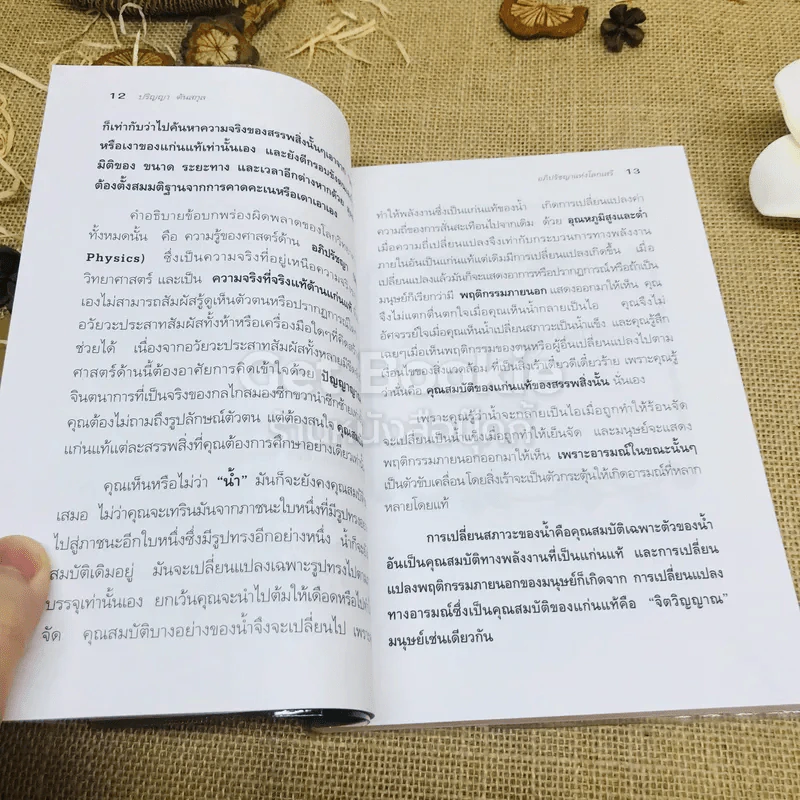 12 ปริญญา ตันสกุล
ก็เท่ากับว่าไปค้นหาความจริงของสรรพสิ่งนั้นๆเอาจาก
หรือเงาของแก่นแท้เท่านั้นเอง และยังตีกรอบขังตน
มิติของ ขนาด ระยะทาง และเวลาอีกต่างหากด้วย
ต้องตั้งสมมติฐานจากการคาดคะเนหรือเดาเอาเอง
คำอธิบายข้อบกพร่องผิดพลาดของโลกวิทยา
ทั้งหมดนั้น คือ ความรู้ของศาสตร์ด้าน อภิปรัชญา
Physics) ซึ่งเป็นความจริงที่อยู่เหนือความจริง
วิทยาศาสตร์ และเป็น ความจริงที่จริงแท้ด้านแก่นแท้
เองไม่สามารถสัมผัสรู้ดูเห็นตัวตนหรือปรากฏการณ์
อวัยวะประสาทสัมผัสทั้งห้าหรือเครื่องมือใดๆที่คิด
ช่วยได้ เนื่องจากอวัยวะประสาทสัมผัสทั้งหลายมี
ศาสตร์ด้านนี้ต้องอาศัยการคิดเข้าใจด้วย ปัญญา
จินตนาการที่เป็นจริงของกลไกสมองซีกขวานำซีกซ้าย
คุณต้องไม่ถามถึงรูปลักษณ์ตัวตน แต่ต้องสนใจ
แก่นแท้แต่ละสรรพสิ่งที่คุณต้องการศึกษาอย่างเดียวเท่า
คุณเห็นหรือไม่ว่า “น้ำ” มันก็จะยังคงคุณสมบัติ
เสมอ ไม่ว่าคุณจะเทรินมันจากภาชนะใบหนึ่งที่มีรูปทรง
ไปสู่ภาชนะอีกใบหนึ่งซึ่งมีรูปทรงอีกอย่างหนึ่ง น้ำก็จะ
สมบัติเดิมอยู่ มันจะเปลี่ยนแปลงเฉพาะรูปทรงไปตาม
บรรจุเท่านั้นเอง ยกเว้นคุณจะนำไปต้มให้เดือดหรือ
จัด คุณสมบัติบางอย่างของน้ำจึงจะเปลี่ยนไป เพราะ
อภิปรัชญาแห่งโลกเสรี 13
ทำให้พลังงานซึ่งเป็นแก่นแท้ของน้ำ เกิดการเปลี่ยนแปลงค่า
ความถี่ของการสั่นสะเทือนไปจากเดิม ด้วย อุณหภูมิสูงและต่ำ
เมื่อความถี่เปลี่ยนแปลงจึงเท่ากับกระบวนการทางพลังงาน
ภายในอันเป็นแก่นแท้แต่เดิมมีการเปลี่ยนแปลงเกิดขึ้น เมื่อ
เปลี่ยนแปลงแล้วมันก็จะแสดงอาการหรือปรากฏการณ์หรือถ้าเป็น
มนุษย์ก็เรียกว่ามี พฤติกรรมภายนอก แสดงออกมาให้เห็น คุณ
จึงไม่แตกตื่นตกใจเมื่อคุณเห็นน้ำกลายเป็นไอ คุณจึงไม่
อัศจรรย์ใจเมื่อคุณเห็นน้ำเปลี่ยนสภาวะเป็นน้ำแข็ง และคุณรู้สึก
เฉยๆเมื่อเห็นพฤติกรรมภายนอกของตนหรือผู้อื่นเปลี่ยนแปลงตาม
เงื่อนไขของสิ่งแวดล้อม ที่เป็นสิ่งเร้าเดี๋ยวดีเดี๋ยวร้าย เพราะคุณรู้
ว่านั่นคือ คุณสมบัติของแก่นแท้ของสรรพสิ่งนั้น นั่นเอง
เพราะคุณรู้ว่าน้ำจะกลายเป็นไอเมื่อถูกทำให้ร้อนจัด
จะเปลี่ยนเป็นน้ำแข็งเมื่อถูกทำให้เย็นจัด และมนุษย์จะแสดง
พฤติกรรมภายนอกออกมาให้เห็น เพราะอารมณ์ในขณะนั้นๆ
เป็นตัวขับเคลื่อน โดยสิ่งเร้าจะเป็นตัวกระตุ้นให้เกิดอารมณ์ที่หลาก
หลายโดยแท้
การเปลี่ยนสภาวะของน้ำคือคุณสมบัติเฉพาะตัวของน้ำ
อันเป็นคุณสมบัติทางพลังงานที่เป็นแก่นแท้ และการเปลี่ยน
แปลงพฤติกรรมภายนอกของมนุษย์ก็เกิดจาก การเปลี่ยนแปลง
ทางอารมณ์ซึ่งเป็นคุณสมบัติของแก่นแท้คือ “จิตวิญญาณ”
มนุษย์เช่นเดียวกัน